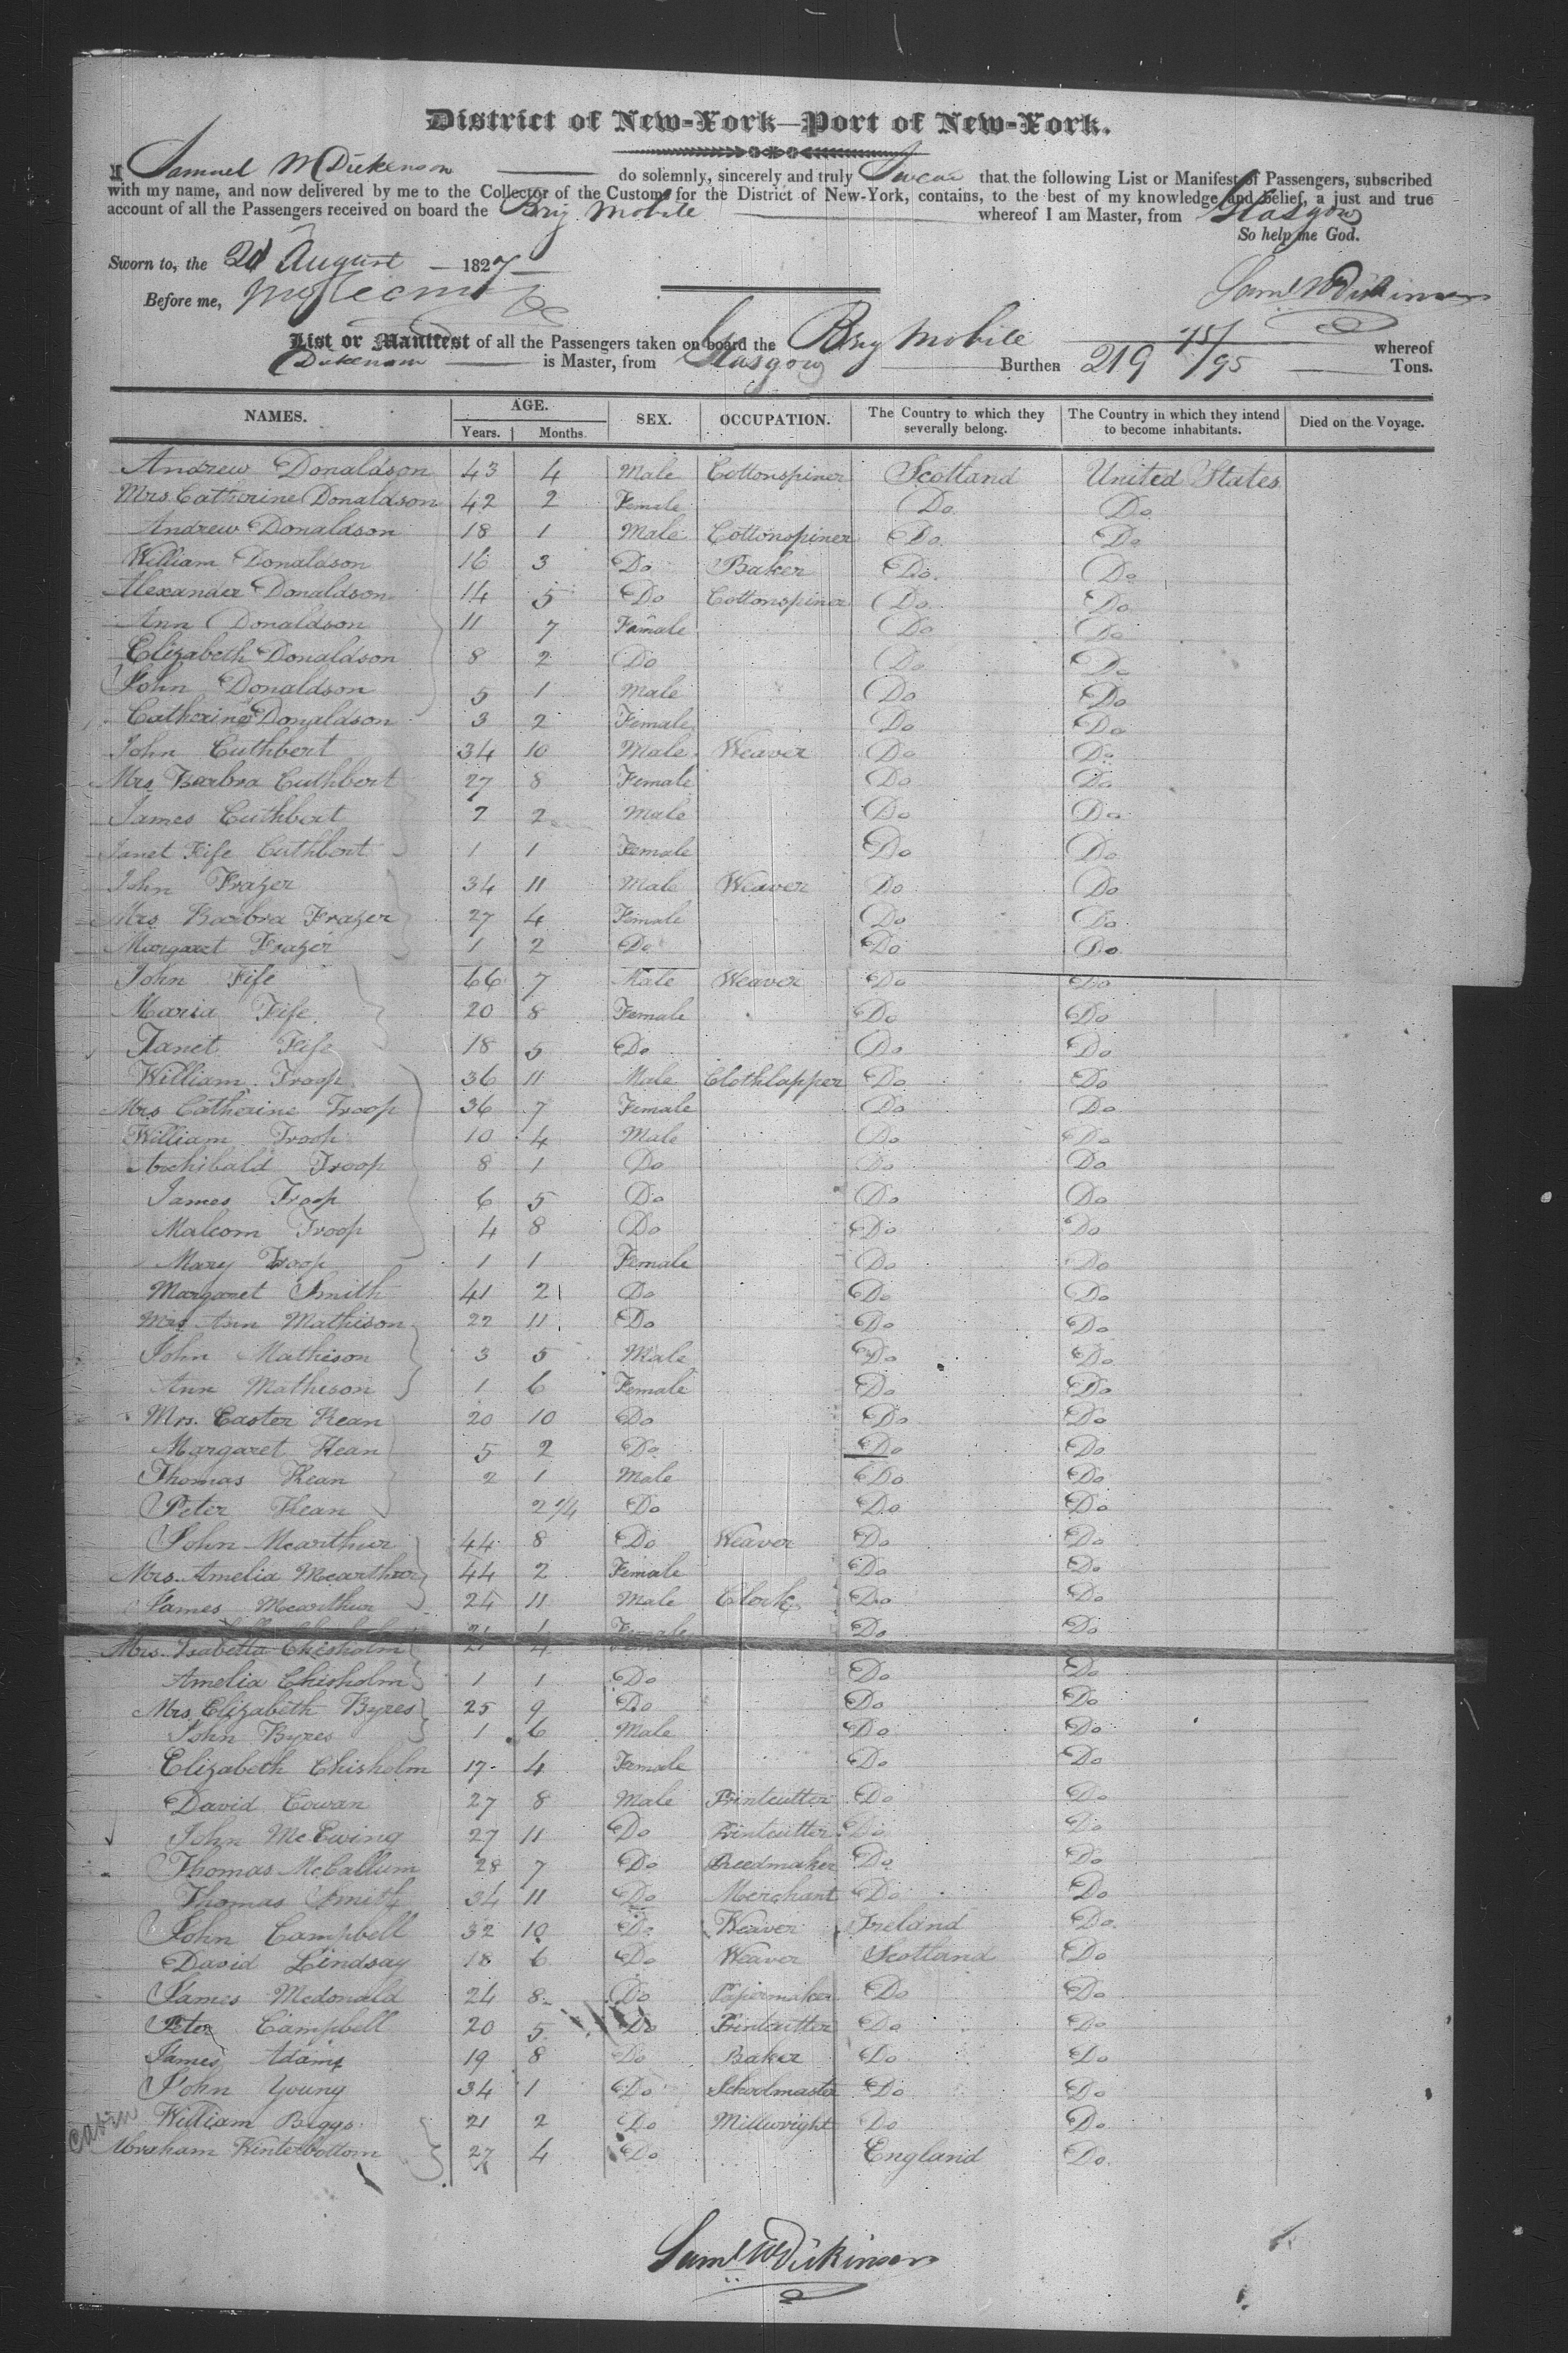 District of New-York—Port of New-York.
I Samuel W Dickenson do solemnly, sincerely and truly Swear that the following List or Manifest of Passengers, subscribed
with my name, and now delivered by me to the Collector of the Customs for the District of New-York, contains, to the best of my knowledge and belief, a just and true
account of all the Passengers received on board the Brig Mobile whereof I am Master, from Glasgow
So help me God.
Sworn to, the 21 August 1827
Before me,
Saml W Dickinson
List or Manifest of all the Passengers taken on board the Brig Mobile whereof
Dickenson is Master, from Glasgow Burthen 219 75/95 Tons.
NAMES. AGE. SEX. OCCUPATION. The Country to which they severally belong. The Country in which they intend to become inhabitants. Died on the Voyage.
Years. Months.
Andrew Donaldson 43 4 Male Cottonspiner Scotland United States
Mrs Catherine Donaldson 42 2 Female Do Do
Andrew Donaldson 18 1 Male Cottonspiner Do Do
William Donaldson 16 3 Do Baker Do Do
Alexander Donaldson 14 5 Do Cottonspiner Do Do
Ann Donaldson 11 7 Female Do Do
Elizabeth Donaldson 8 2 Do Do Do
John Donaldson 5 1 Male Do Do
Catherine Donaldson 3 2 Female Do Do
John Cuthbert 34 10 Male Weaver Do Do
Mrs Barbra Cuthbert 27 8 Female Do Do
James Cuthbert 7 2 Male Do Do
Janet Fife Cuthbert 1 1 Female Do Do
John Frazer 34 11 Male Weaver Do Do
Mrs Barbra Frazer 27 4 Female Do Do
Margaret Frazer 1 2 Do Do Do
John Fife 66 7 Male Weaver Do Do
Maria Fife 20 8 Female Do Do
Janet Fife 18 5 Do Do Do
William Troop 36 11 Male Clothlapper Do Do
Mrs Catheine Troop 36 7 Female Do Do
William Troop 10 4 Male Do Do
Archibald Troop 8 1 Do Do Do
James Troop 6 5 Do Do Do
Malcom Troop 4 8 Do Do Do
Mary Troop 1 1 Female Do Do
Margaret Smith 41 2 Do Do Do
Mrs Ann Mathison 22 11 Do Do Do
John Mathison 3 5 Male Do Do
Ann Mathison 1 6 Female Do Do
Mrs. Easter Kean 20 10 Do Do Do
Margaret Kean 5 2 Do Do Do
Thomas Kean 2 1 Male Do Do
Peter Kean 2 1/4 Do Do Do
John Mcarthur 44 8 Do Weaver Do Do
Mrs. Amelia Mcarthur 44 2 Female Do Do
James Mcarthur 24 11 Male Clerk Do Do
Mrs. Isabella Chisholm 21 4 Female Do Do
Amelia Chisholm 1 1 Do Do Do
Mrs Elizabeth Byres 25 9 Do Do Do
John Byres 1 6 Male Do Do
Elizabeth Chisholm 17 4 Female Do Do
David Cowan 27 8 Male Printcutter Do Do
John McEwing 27 11 Do Printcutter Do Do
Thomas McCallum 28 7 Do Reedmaker Do Do
Thomas Smith 34 11 Do Merchant Do Do
John Campbell 32 10 Do Weaver Ireland Do
David Lindsay 18 6 Do Weaver Scotland Do
James Mcdonald 24 8 Do Papermaker Do Do
Peter Campbell 20 5 Do Printcutter Do Do
James Adams 19 8 Do Baker Do Do
John Young 34 1 Do Schoolmaster Do Do
William Biggs 21 2 Do Millwright Do Do
Cabin Abraham Winterbottom 27 4 Do England Do
Saml W Dickinson